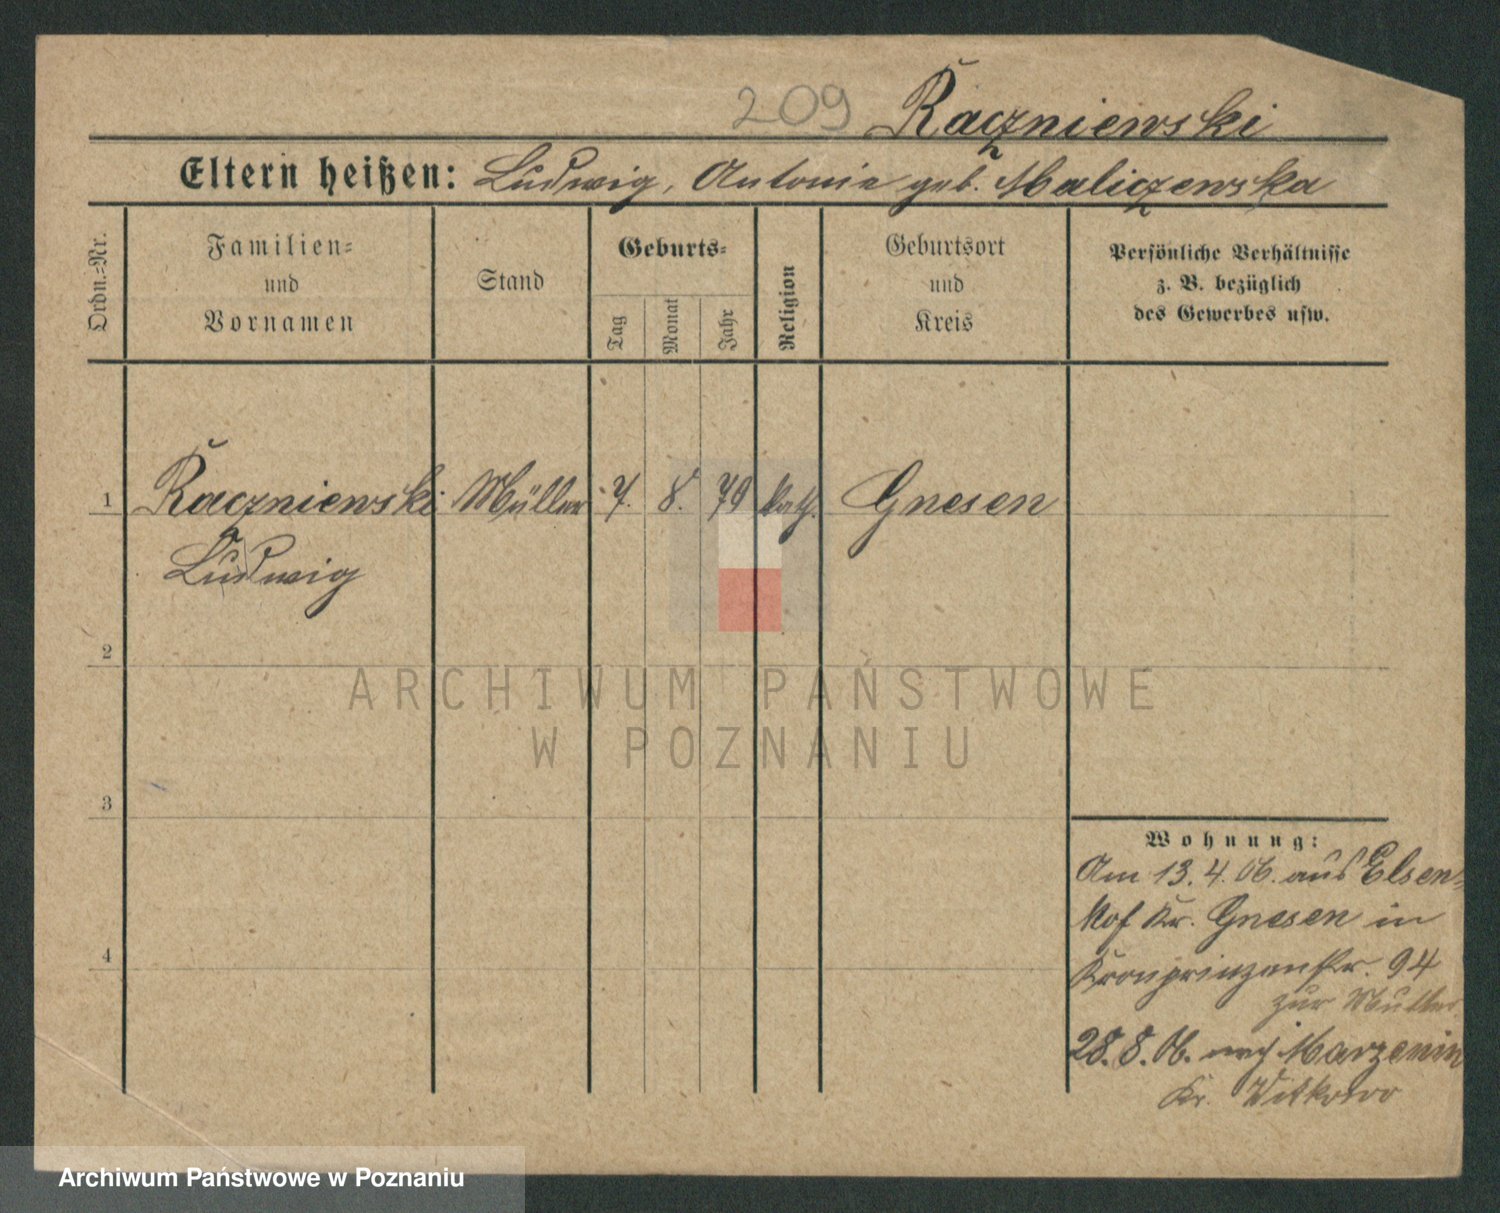 209 Raczniewski
Eltern heißen: Ludwig, Antonie geb. Maliczewska
Ordn.=Nr.
Familien=
und
Vornamen
Stand
Geburts=
Tag
Monat
Jahr
Religion
Geburtsort
und
Kreis
Persönliche Verhältnisse
z. B. bezüglich
des Gewerbes usw.
1 Raczniewski Müller 7. 8. 79 kath. Gnesen
Ludwig
2
3
4
Wohnung:
Am 13.4.06. aus Elsen-
hof Kr. Gnesen in
Kronprinzenstr. 94
zur Mutter
28.8.06. nach Marzenin
Kr. Witkowo
ARCHIWUM PAŃSTWOWE
W POZNANIU
Archiwum Państwowe w Poznaniu